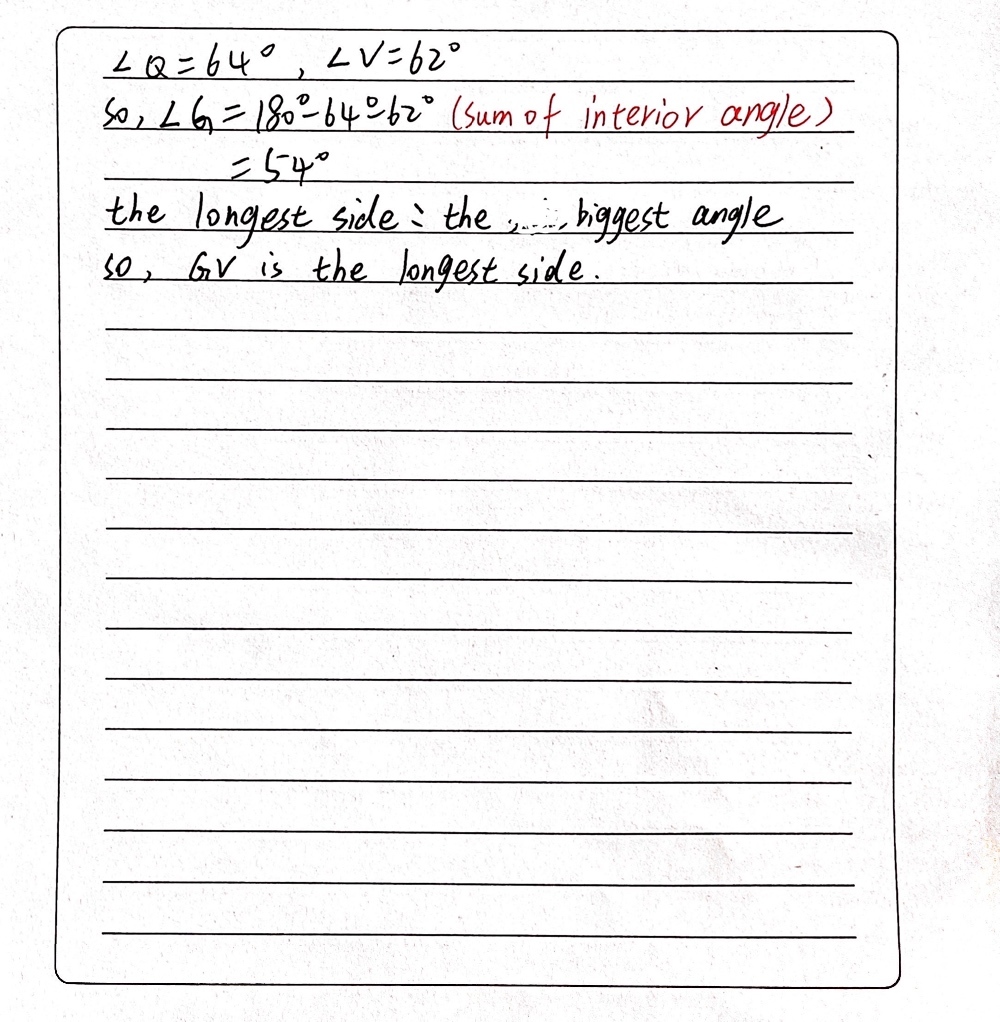 ∠Q=64°, ∠V=62°
so, ∠G=180°-64°-62° (sum of interior angle)
=54°
the longest side: the biggest angle
so, GV is the longest side.